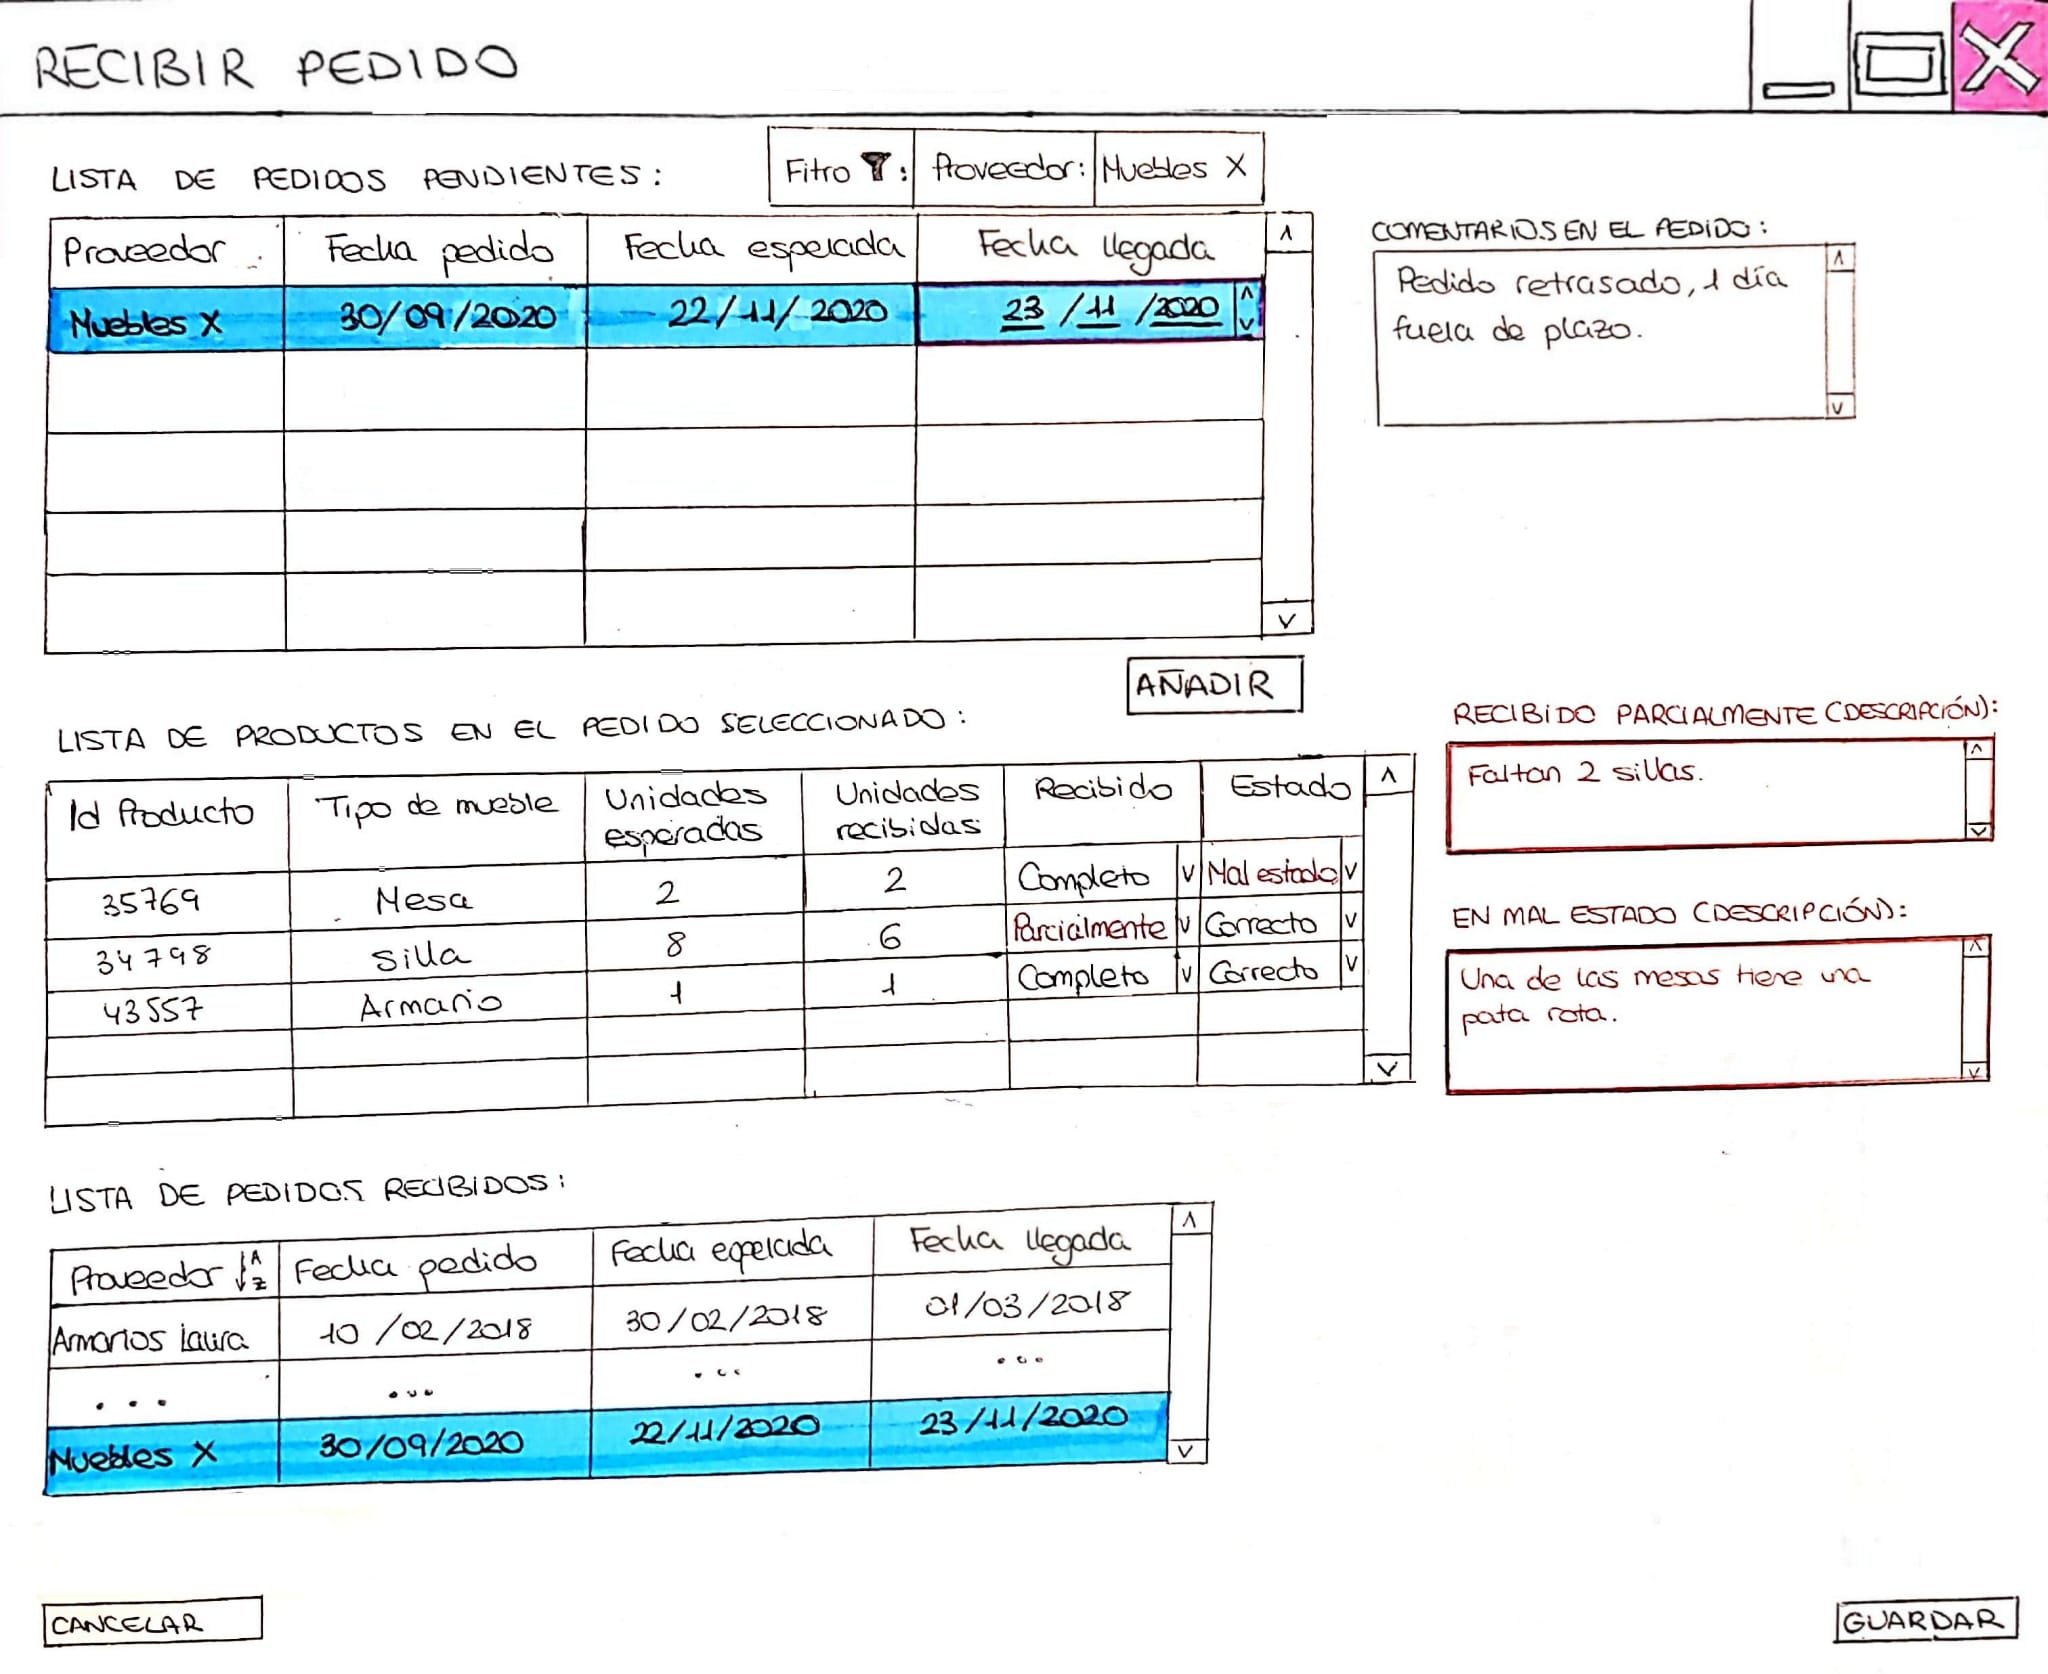 RECIBIR PEDIDO
LISTA DE PEDIDOS PENDIENTES:
Fitro : Proveedor: Muebles X
Proveedor Fecha pedido Fecha esperada Fecha llegada
Muebles X 30/09/2020 22/11/2020 23/11/2020
COMENTARIOS EN EL PEDIDO:
Pedido retrasado, 1 día
fuera de plazo.
AÑADIR
LISTA DE PRODUCTOS EN EL PEDIDO SELECCIONADO:
Id Producto Tipo de mueble Unidades esperadas Unidades recibidas Recibido Estado
35769 Mesa 2 2 Completo Mal estado
34798 Silla 8 6 Parcialmente Correcto
43557 Armario 1 1 Completo Correcto
RECIBIDO PARCIALMENTE (DESCRIPCIÓN):
Faltan 2 sillas.
EN MAL ESTADO (DESCRIPCIÓN):
Una de las mesas tiene una
pata rota.
LISTA DE PEDIDOS RECIBIDOS:
Proveedor AZ Fecha pedido Fecha eperada Fecha llegada
Armarios Laura 10/02/2018 30/02/2018 01/03/2018
... ... ... ...
Muebles X 30/09/2020 22/11/2020 23/11/2020
CANCELAR
GUARDAR